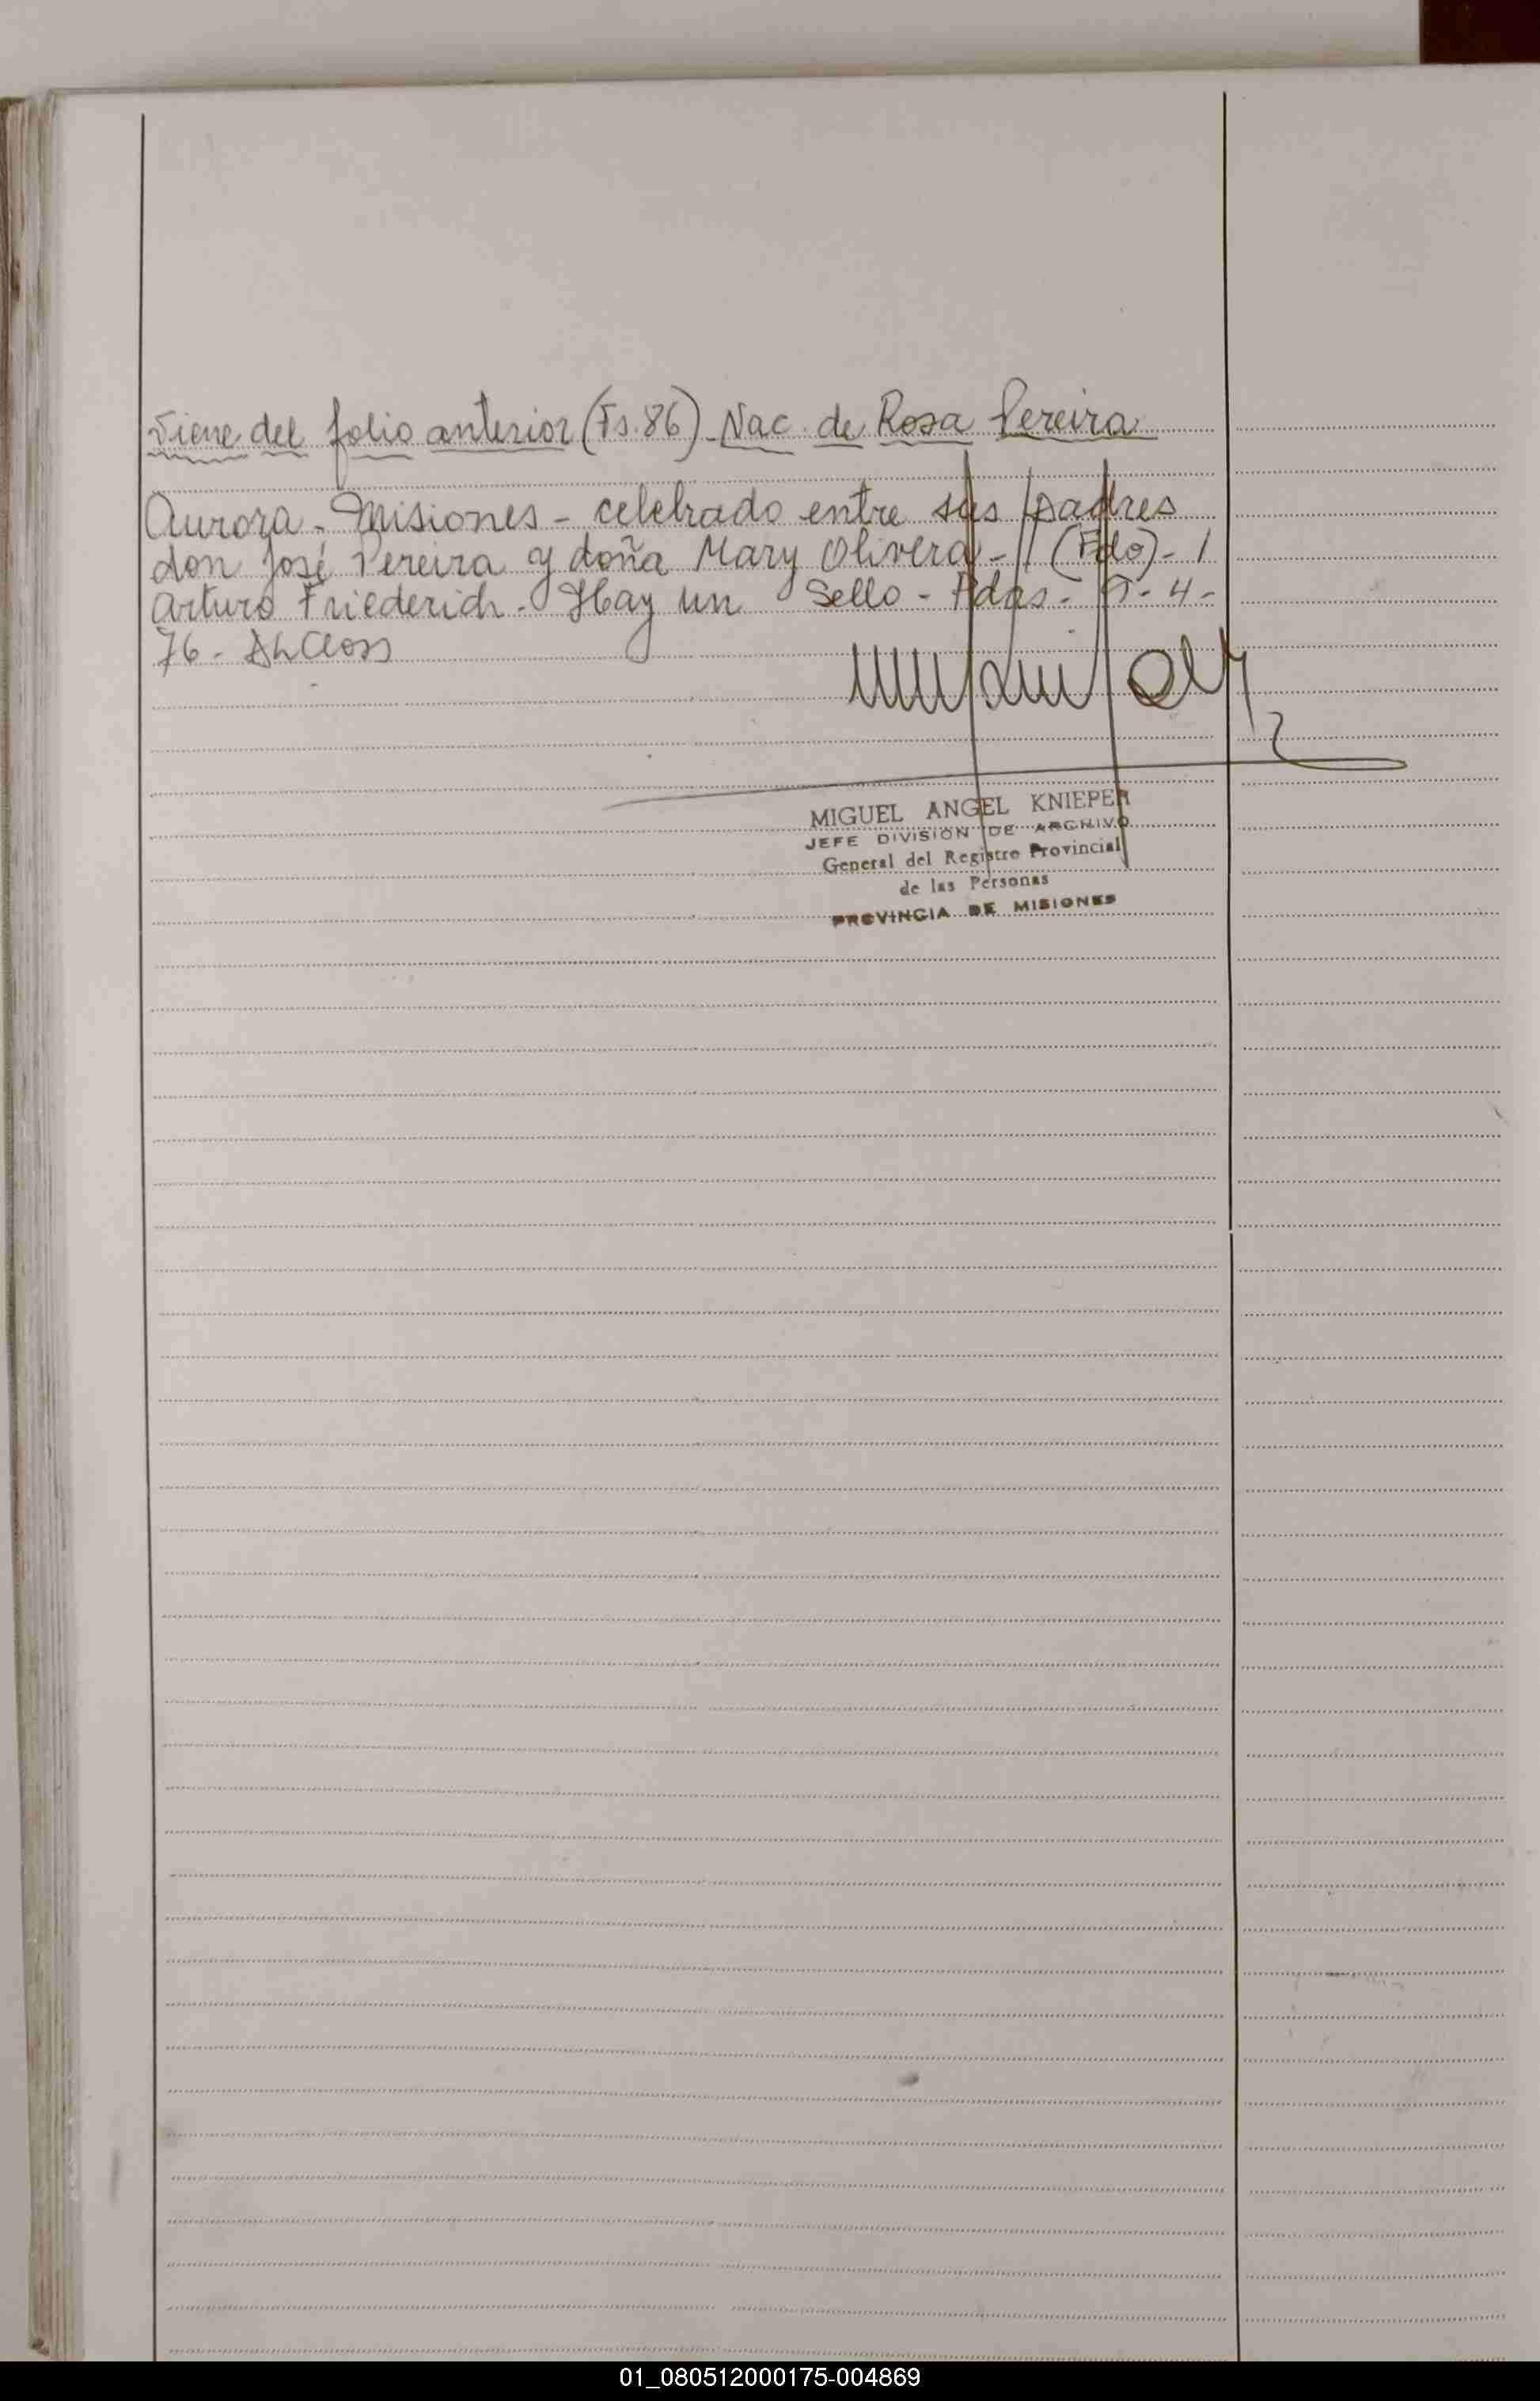 Viene del folio anterior (Fs. 86) - Nac. de Rosa Pereira
Aurora - Misiones - celebrado entre sus padres
don José Pereira y doña Mary Olivera - (Fdo) - /
Arturo Friederich - Hay un Sello - Pdas - - 4 -
76 -
MIGUEL ANGEL KNIEPER
JEFE DIVISION DE ARCHIVO
General del Registro Provincial
de las Personas
PROVINCIA DE MISIONES
01_080512000175-004869